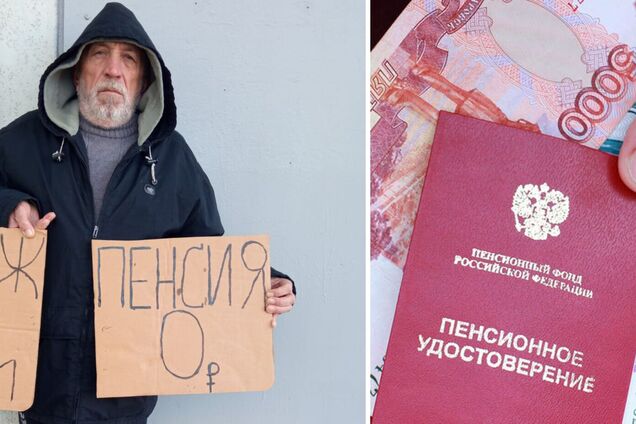 Ж
Л
ПЕНСИЯ
0₽
5000
ПЕНСИОННЫЙ ФОНД
РОССИЙСКОЙ ФЕДЕРАЦИИ
ПЕНСИОННОЕ
УДОСТОВЕРЕНИЕ